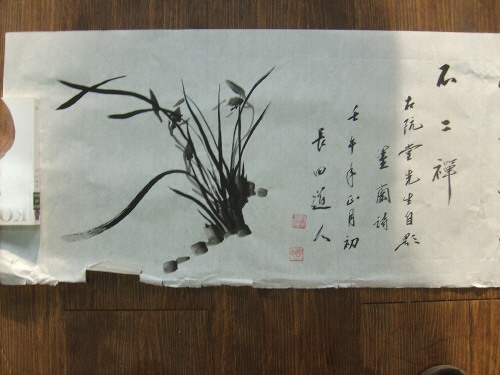 不二禪
右阮堂先生自題
墨蘭詩
壬午年正月初
長田道人